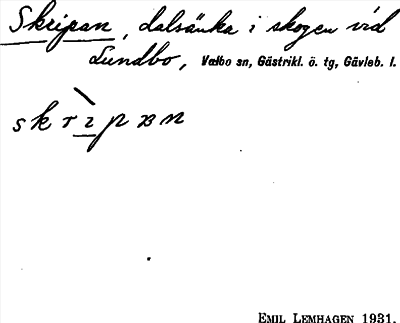 Skripan, dalsänka i skogen vid
Lundbo, Valbo sn, Gästrikl. ö. tg, Gävleb. l.
skrìpan
EMIL LEMHAGEN 1931.